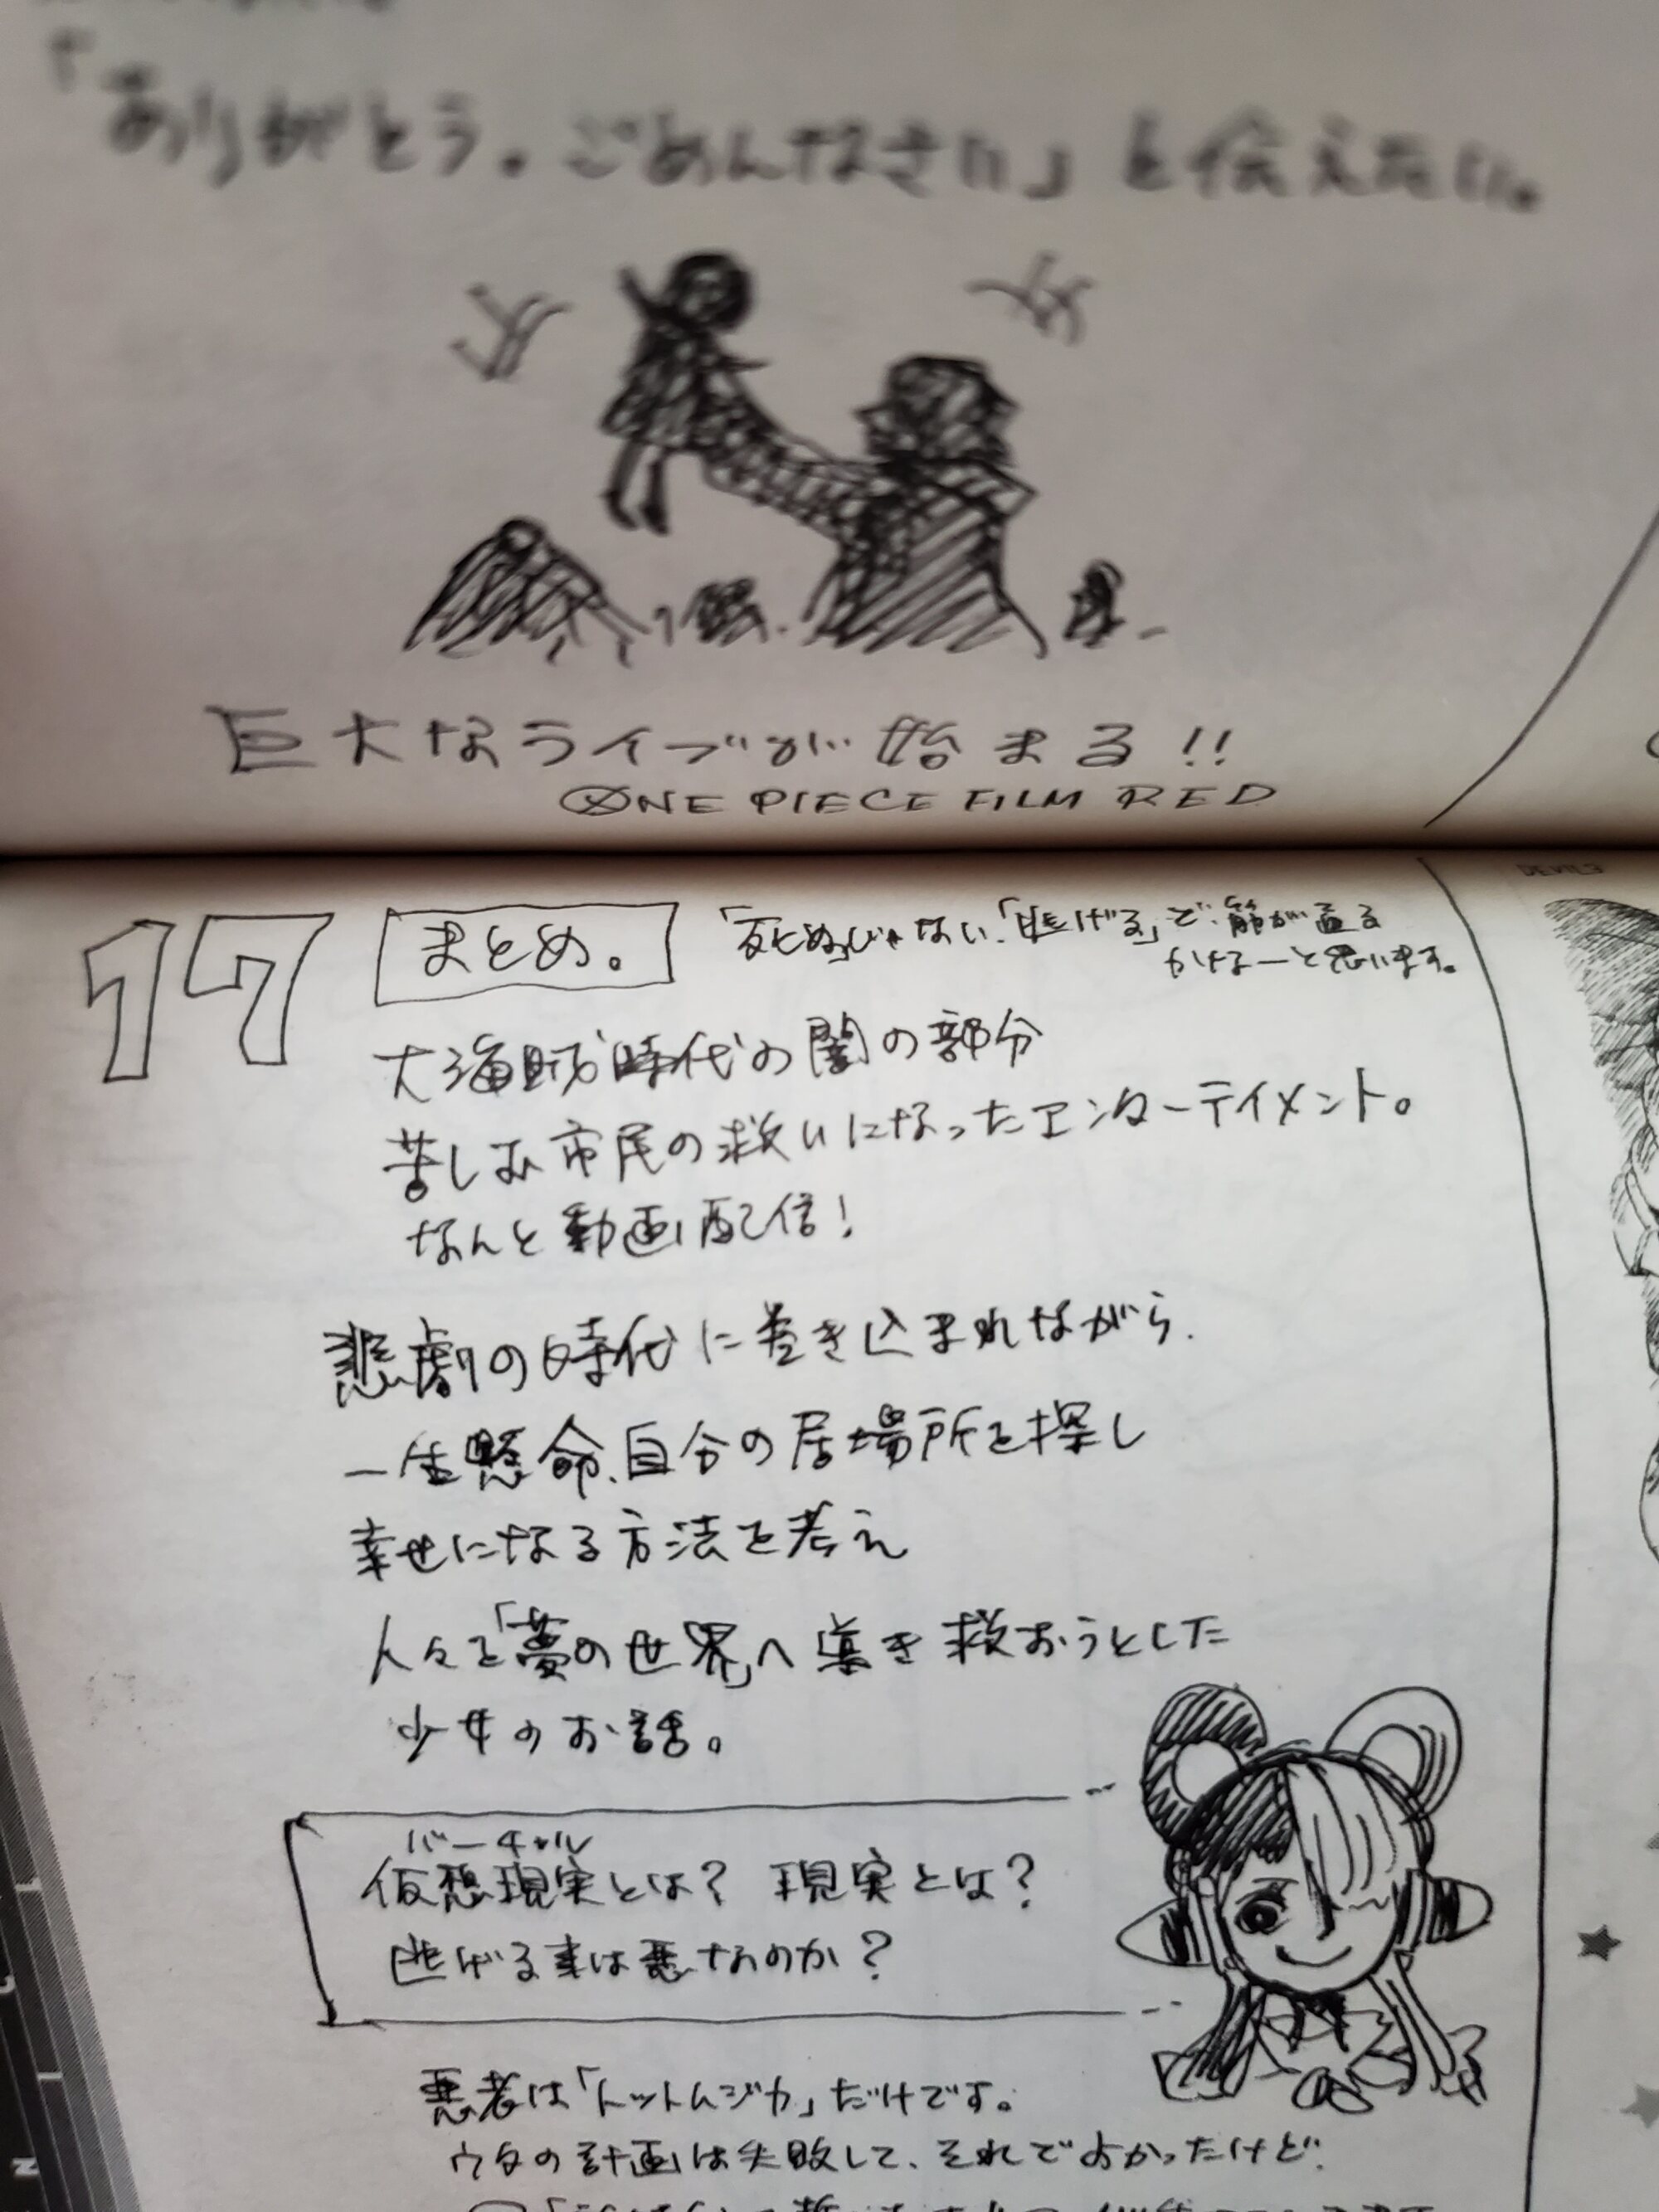 「ありがとう。ごめんなさい」と伝えたい。
巨大なライブが始まる!!
ONE PIECE FILM RED
17
まとめ。
「死ぬ」じゃない、「逃げる」で、筋が通る
かなーと思います。
大海賊時代の闇の部分
苦しむ市民の救いになったエンターテイメント。
なんと動画配信!
悲劇の時代に巻き込まれながら、
一生懸命、自分の居場所を探し
幸せになる方法を考え
人々を「夢の世界」へ導き救おうとした
少女のお話。
バーチャル
仮想現実とは? 現実とは?
逃げる事は悪なのか?
悪者は「トットムジカ」だけです。
ウタの計画は失敗して、それでよかったけど、